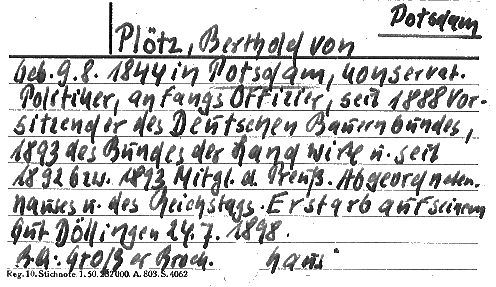 Potsdam
Plötz, Berthold von
Geb. 9.8. 1844 in Potsdam, konservat.
Politiker, anfangs Offizier, seit 1888 Vor-
sitzender des Deutschen Bauernbundes,
1893 des Bundes der Landwirte u. seit
1892 bzw. 1893 Mitgl. d. Preuß. Abgeordneten-
hauses u. des Reichstags. Erstarb auf seinem
Gut Döllingen 24.7. 1898.
Großer Brock. Haus
Reg. 10. Stichnote. 1. 50. 252000. A. 803. S. 4062